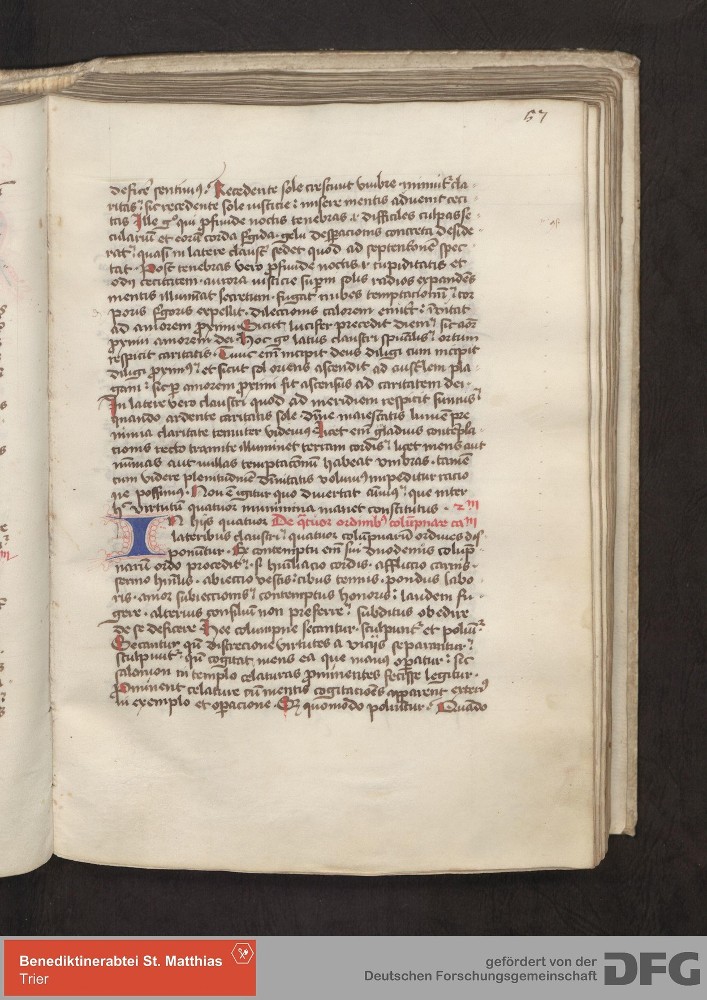 57
deficere sentimus. Recedente sole crescunt vmbre minuitur cla
ritas sic recedente sole iusticie misere mentis advenit ceci
tas Ille qui profunde noctis tenebras difficiles culpas se
cularium et eorum corda frigida gelu desperacionis concreta deside
rat quasi in latere claustri sedet quod ad septentrionem spec
tat. Post tenebras vero profunde noctis cupiditatis et
odii cecitatem aurora iusticie superni solis radios expandens
mentis illuminat secretum. fugat nubes temptacionum cor
poris frigoris expellit. dileccionis calorem emittit invitat
ad amorem proximi. Sicut lucifer precedit diem sic amor
proximi amorem dei. Hoc latus claustri spiritualis ortum
respicit caritatis. Tunc enim incipit deus diligi cum incipit
diligi proximus et sicut sol oriens ascendit ad australem pla
gam sic per amorem proximi fit ascensus ad caritatem dei.
In latere vero claustri quod ad meridiem respicit sumus
quando ardente caritatis sole divine maiestatis lumen pre
nimia claritate tenuiter videmus licet enim gladius contempla
cionis recto tramite illuminet terram cordis licet mens aut
minimas aut nullas temptacionum habeat vmbras. tamen
cum videre plenitudinem divinitatis volumus impeditur racio
ne possimus. Non est igitur quo divertat animus que inter
hec virtutum quatuor munimina manet constitutus.
In hiis quatuor De quatuor ordinibus columpnarum
lateribus claustri quatuor columpnarum ordines dis
ponuntur. Ex contemptu enim sui duodenus colump
narum ordo procedit humiliacio cordis. affliccio carnis.
sermo humilis. abieccio vestis. cibus tenuis. pondus labo
ris. amor subieccionis contemptus honoris laudem fu
gere. alterius consilium non preferre subditus obedire
de se deficere. Hee columpne secantur. sculpuntur et poliuntur
Secantur quando discrecione virtutes a viciis separantur
sculpuntur quando cogitat mens ea que manus operatur sic
salomon in templo celaturas prominentes fecisse legitur.
Prominent celature cum mentis cogitaciones apparent exterius
in exemplo et operacione. quomodo poliuntur. Quando
Benediktinerabtei St. Matthias
Trier
gefördert von der
Deutschen Forschungsgemeinschaft
DFG